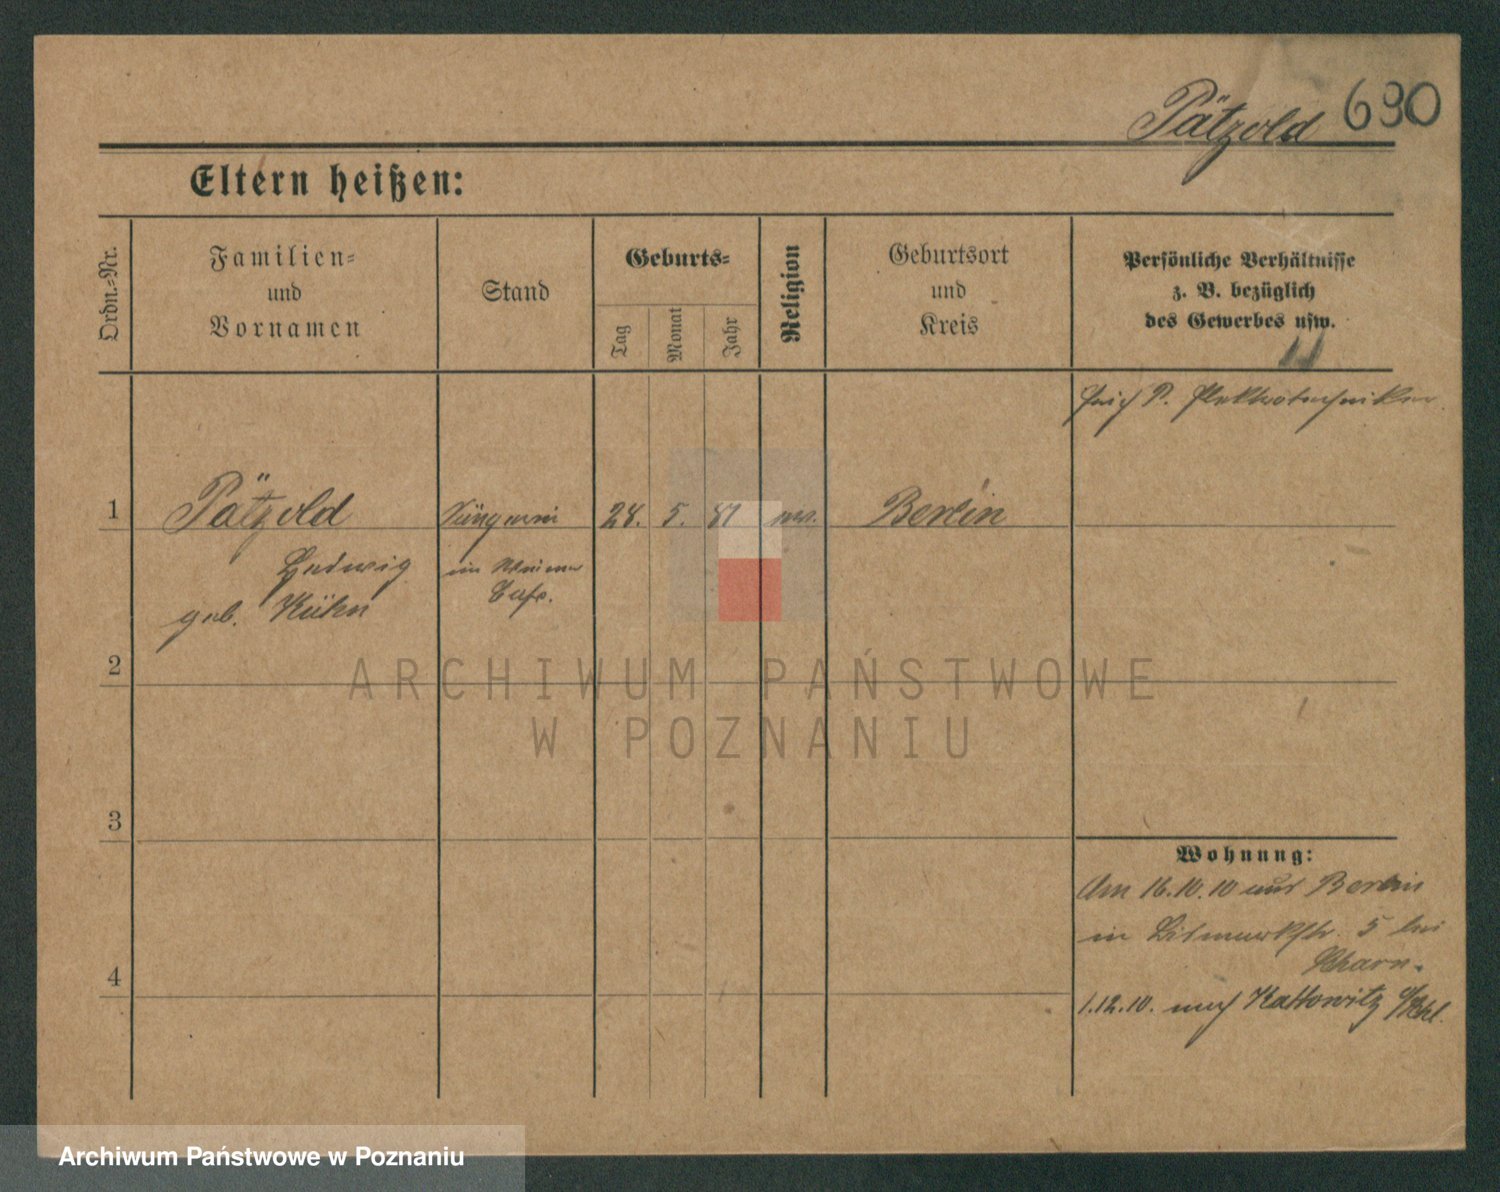 Pätzold 690
Eltern heißen:
Ordn.-Nr.
Familien-
und
Vornamen
Stand
Geburts-
Tag
Monat
Jahr
Religion
Geburtsort
und
Kreis
Persönliche Verhältnisse
z. B. bezüglich
des Gewerbes usw.
Erich P. Elektrotechniker
1 Pätzold Sängerin 28. 5. 87 ev. Berlin
Hedwig im Wiener
geb. Kühn Café.
2
ARCHIWUM PAŃSTWOWE
W POZNANIU
3
Wohnung:
Am 16.10.10 aus Berlin
in Bismarckstr. 5 bei
4
1.12.10. nach Kattowitz O/Schl.
Archiwum Państwowe w Poznaniu